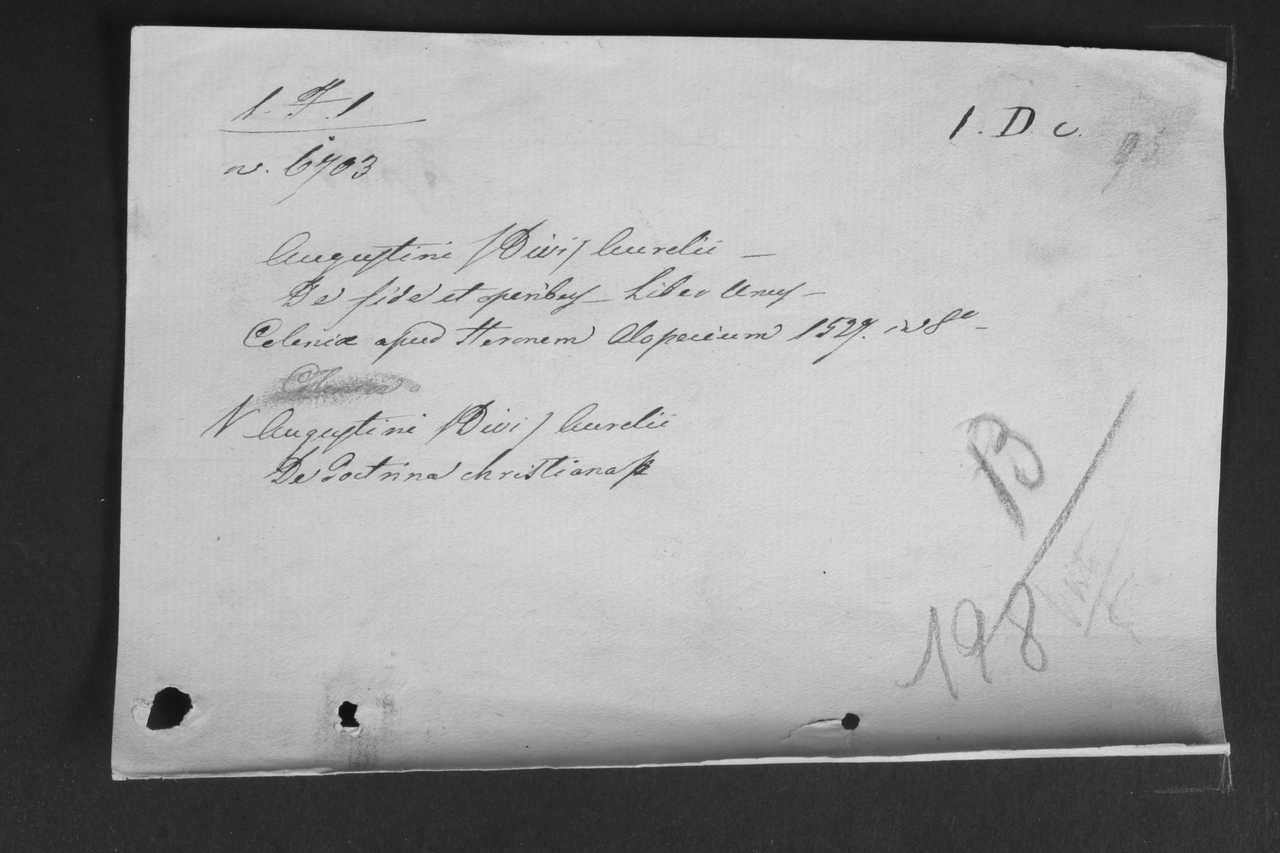 1. F. 1
1. D c.
n. 6703
Augustini /Divi/ Aurelii —
De fide et operibus – Liber Unus –
Coloniæ apud Heronem Alopecium 1527. in 8º –
N Augustini /Divi/ Aurelii
De Doctrina christiana
B
198